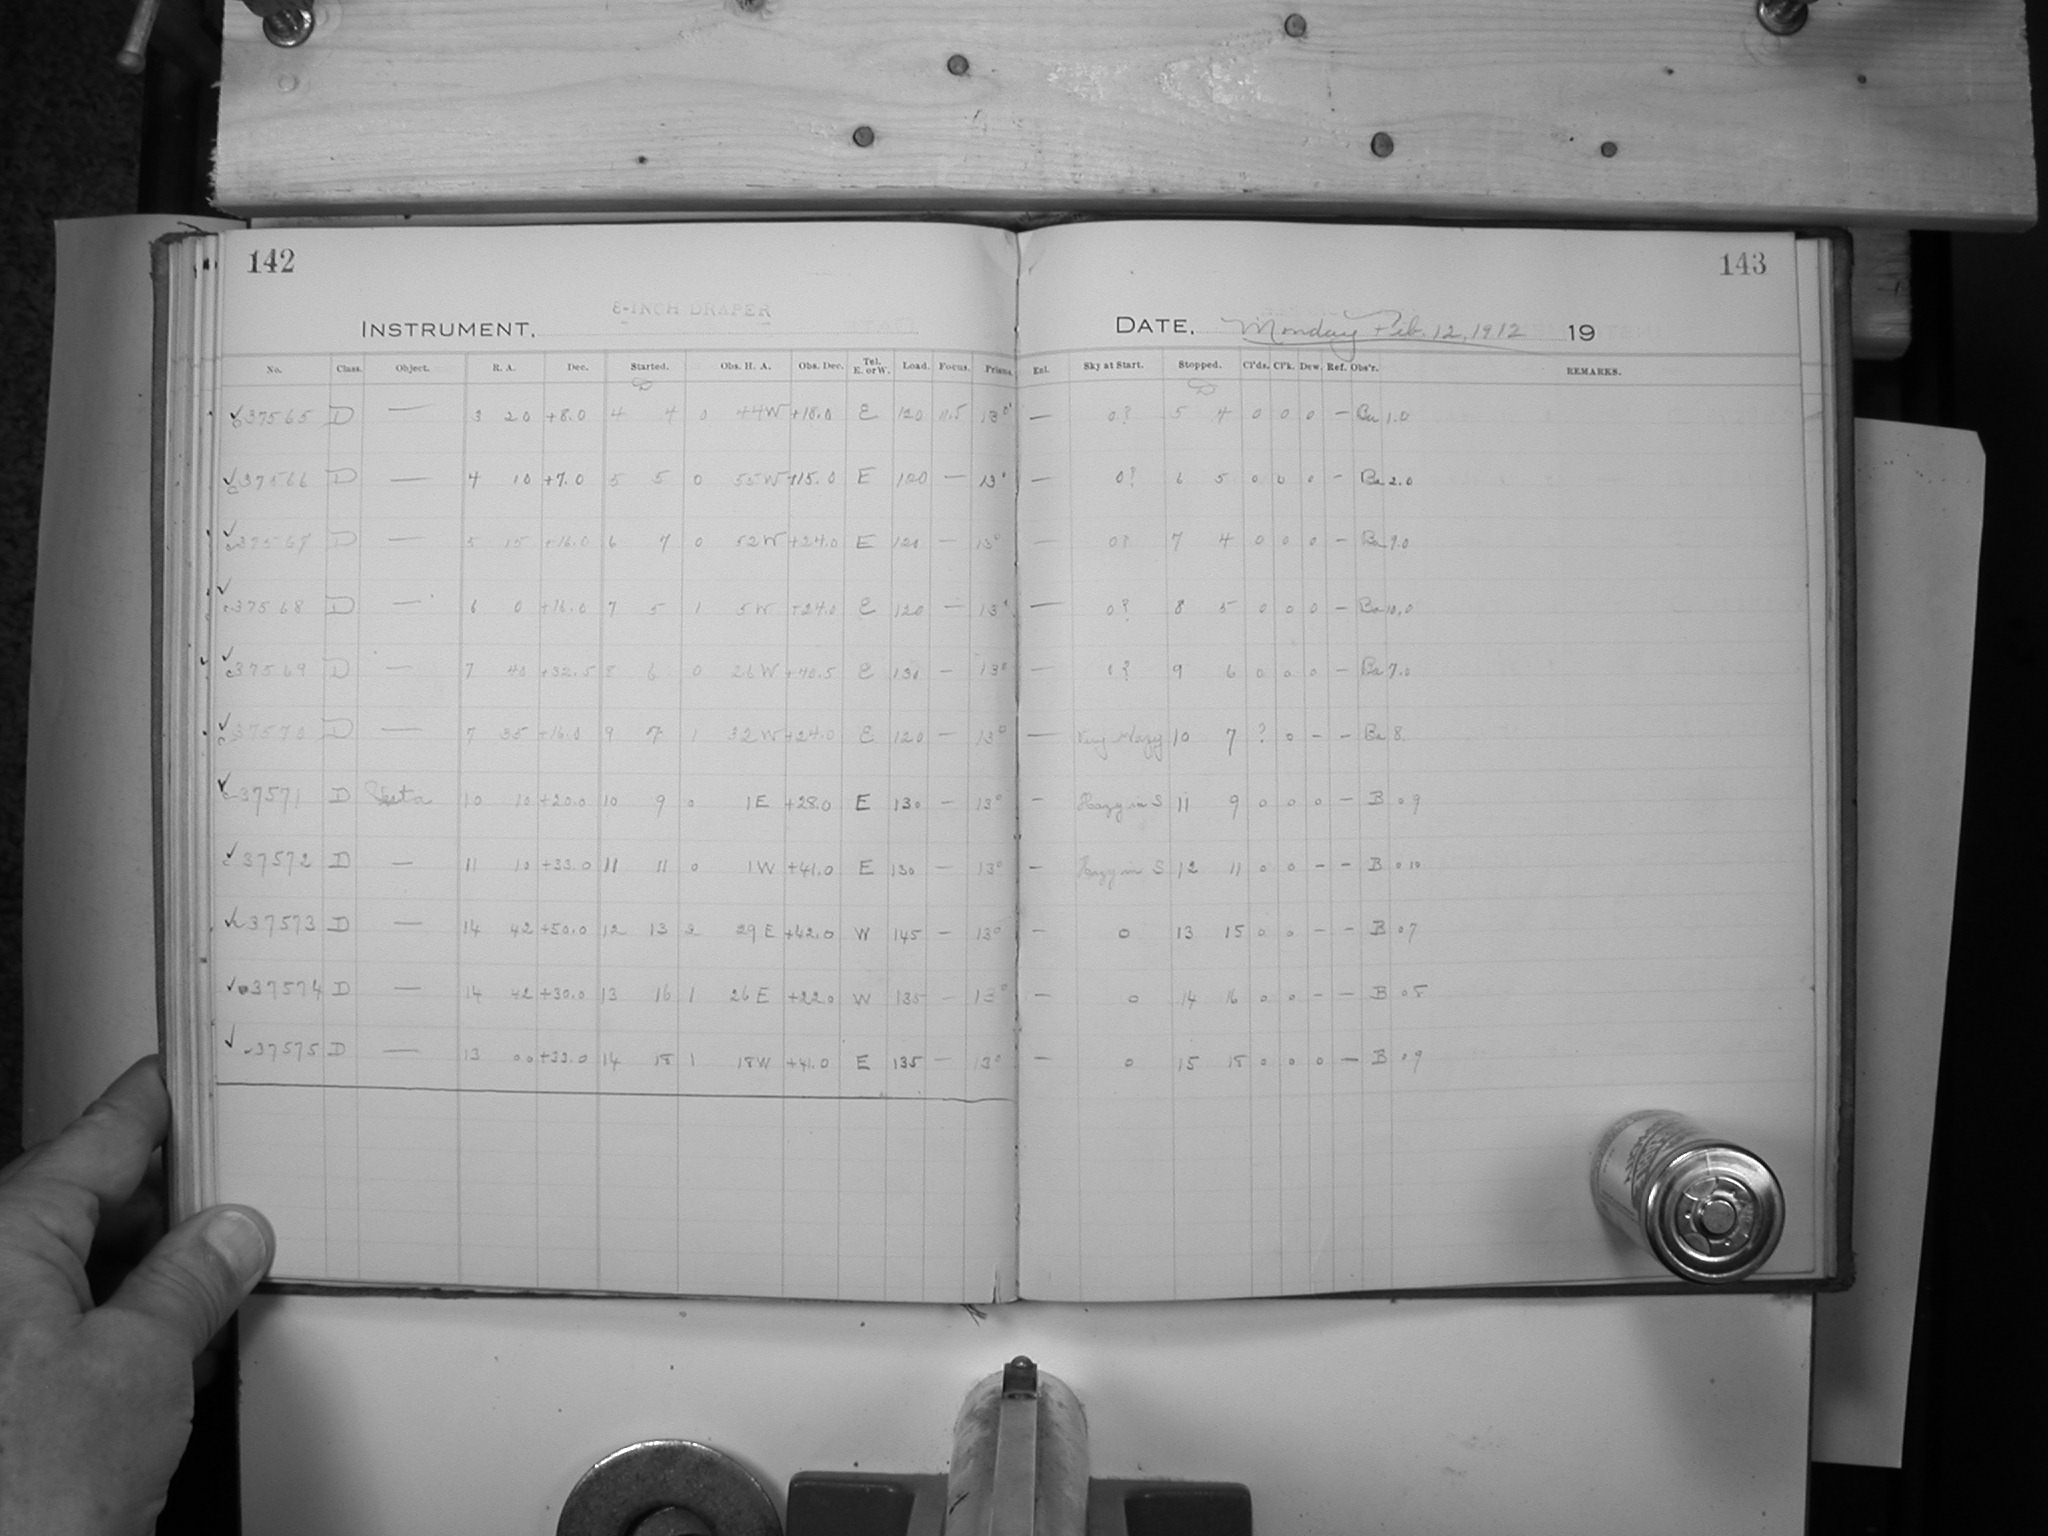 142
143
8-INCH DRAPER
INSTRUMENT.
DATE. Monday Feb. 12, 1912 19
No. Class. Object. R. A. Dec. Started. Obs. H. A. Obs. Dec. Tel. E. or W. Load. Focus. Prisms. Enl. Sky at Start. Stopped. Cl'ds. Cl'k. Dew. Ref. Obs'r. REMARKS.
37565 D — 3 20 +8.0 4 4 0 44W +18.0 E 120 11.5 13° — 0? 5 4 0 0 0 — Ba 1.0
c37566 D — 4 10 +7.0 5 5 0 55W +15.0 E 120 — 13° — 0? 6 5 0 0 0 — Ba 2.0
c37567 D — 5 15 +16.0 6 7 0 52W +24.0 E 120 — 13° — 0? 7 4 0 0 0 — Ba 9.0
c37568 D — 6 0 +16.0 7 5 1 5W +24.0 E 120 — 13° — 0? 8 5 0 0 0 — Ba 10.0
c37569 D — 7 40 +32.5 8 6 0 26W +40.5 E 130 — 13° — 0? 9 6 0 0 0 — Ba 7.0
c37570 D — 7 35 +16.0 9 7 1 32W +24.0 E 120 — 13° — Very Hazy 10 7 ? 0 — — Ba 8.
c37571 D Vesta 10 10 +20.0 10 9 0 1E +28.0 E 130 — 13° — Hazy in S 11 9 0 0 0 — B 09
c37572 D — 11 10 +33.0 11 11 0 1W +41.0 E 130 — 13° — Hazy in S 12 11 0 0 — — B 010
37573 D — 14 42 +50.0 12 13 2 29E +42.0 W 145 — 13° — 0 13 15 0 0 — — B 07
37574 D — 14 42 +30.0 13 16 1 26E +22.0 W 135 — 13° — 0 14 16 0 0 — — B 08
37575 D — 13 00 +33.0 14 18 1 18W +41.0 E 135 — 13° — 0 15 18 0 0 0 — B 09